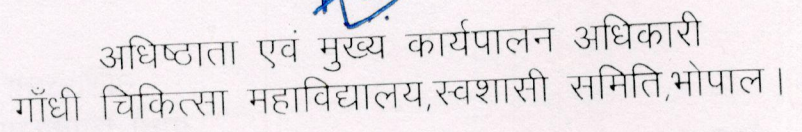 अधिष्ठाता एवं मुख्य कार्यपालन अधिकारी
गाँधी चिकित्सा महाविद्यालय,स्वशासी समिति,भोपाल।